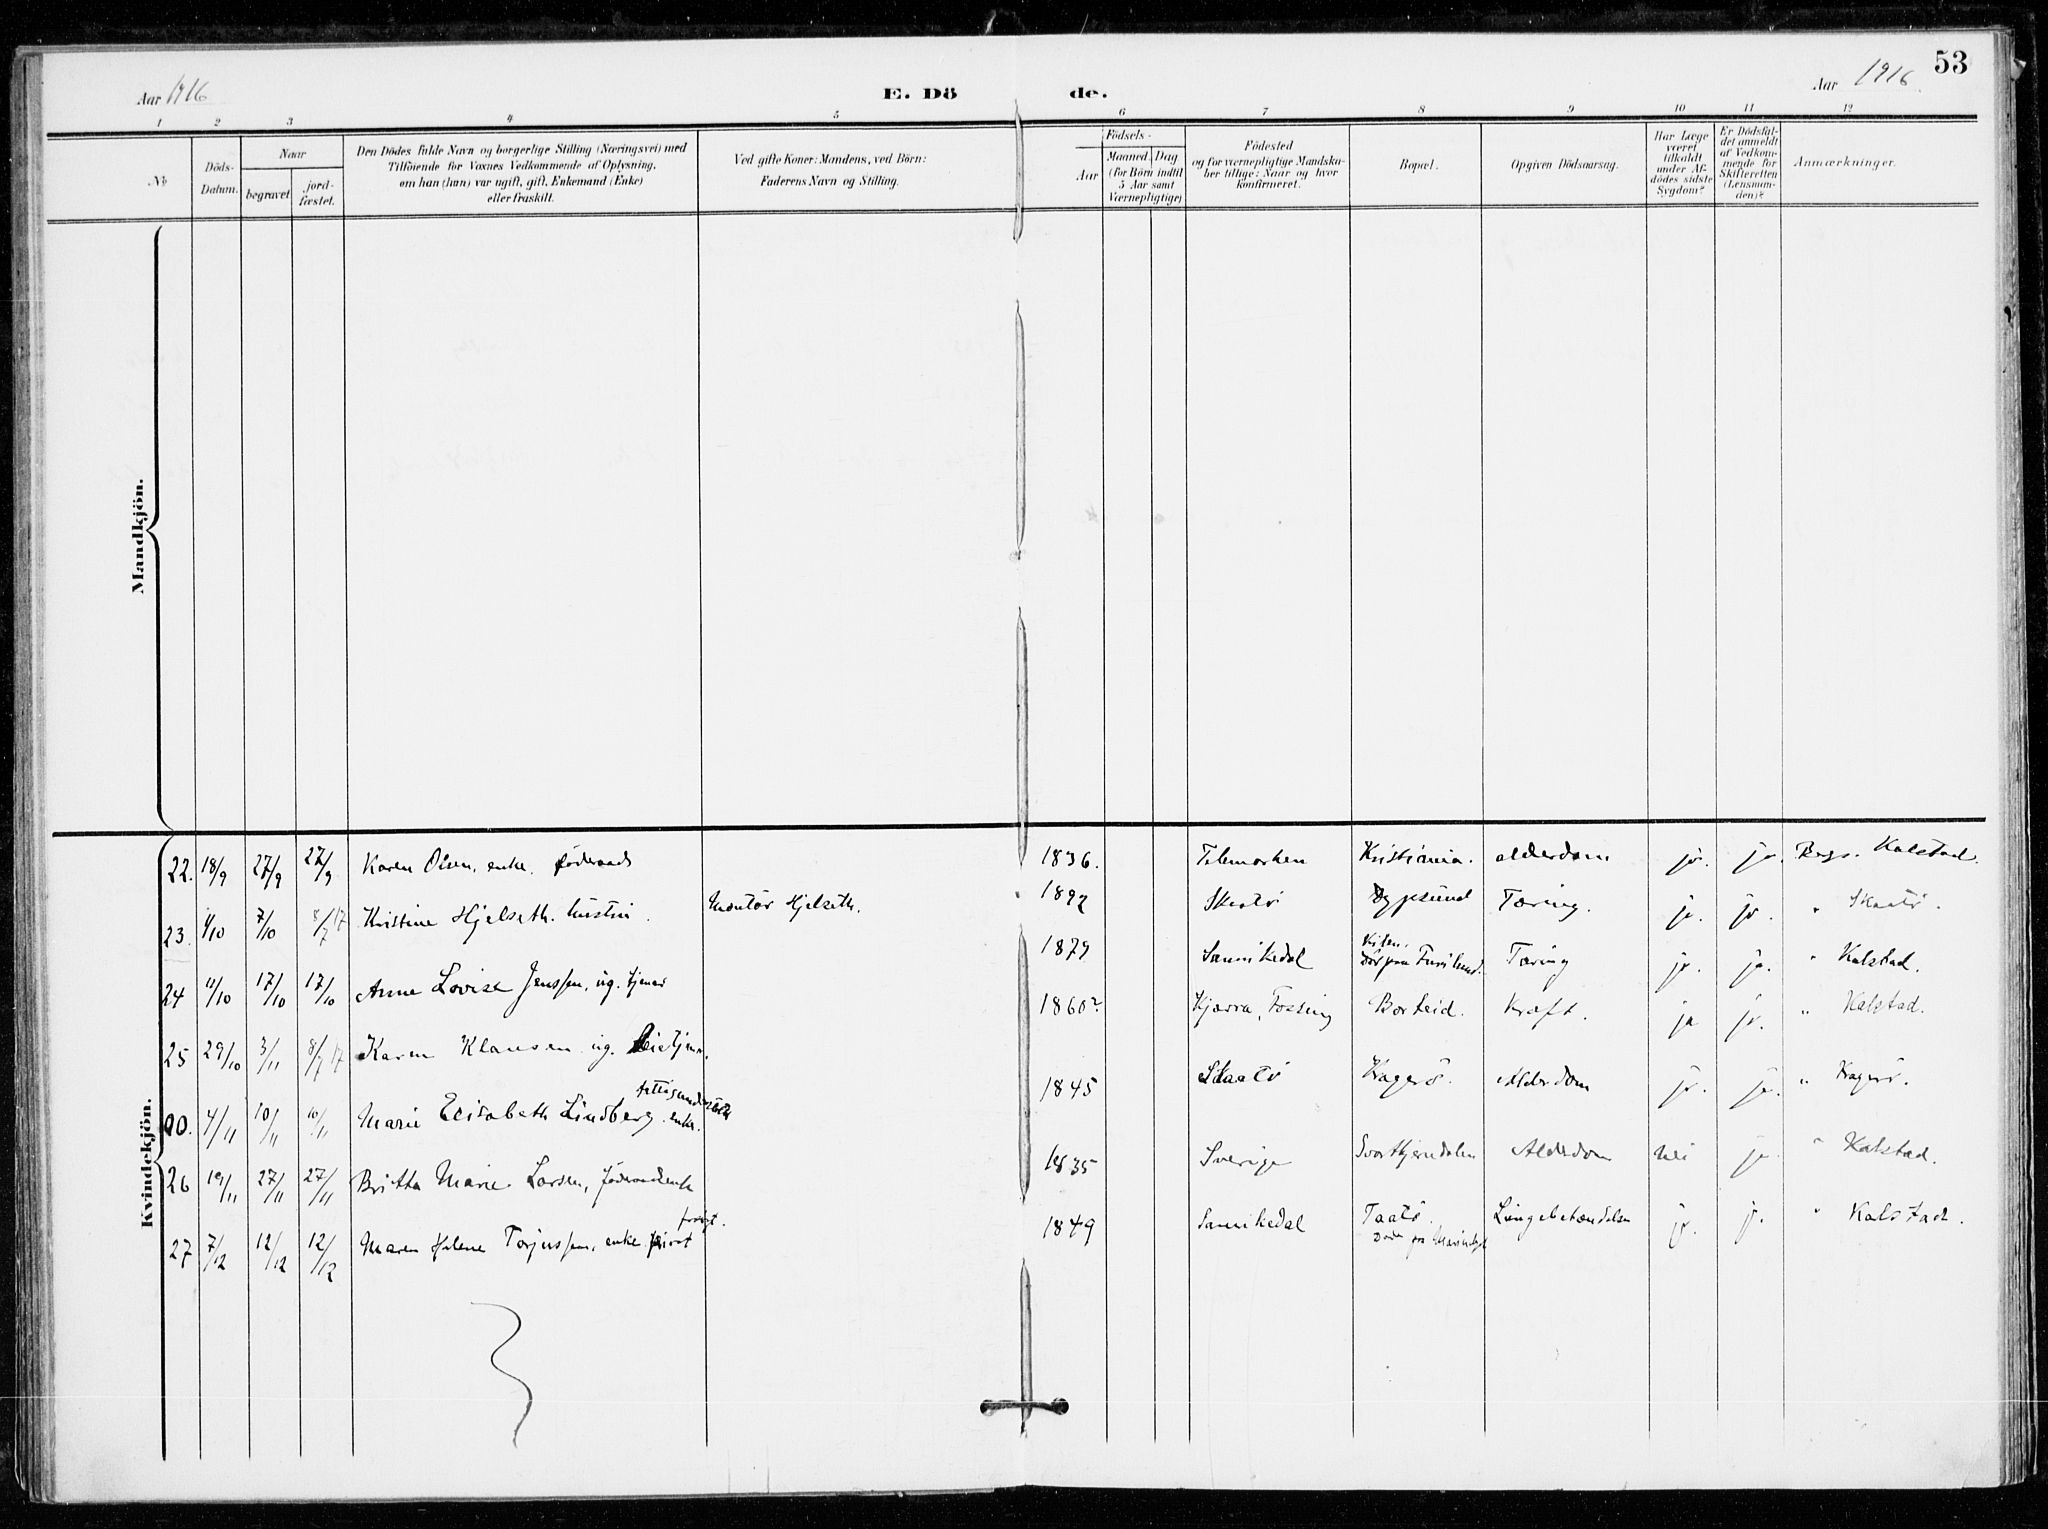 53
Aar 1916
E. Dö de.
Aar 1916.
1 2 3 4 5 6 7 8 9 10 11 12
No
Döds-
Datum.
Naar
begravet
jord-
fæstet.
Den Dödes fulde Navn og borgerlige Stilling (Næringsvei) med
Tilföiende for Voxnes Vedkommende af Oplysning,
om han (hun) var ugift, gift, Enkemand (Enke)
eller fraskilt.
Ved gifte Koner: Mandens, ved Börn:
Faderens Navn og Stilling.
Födsels-
Aar
Maaned. Dag
(for Börn indtil
5 Aar samt
Værnepligtige)
Födested
og for værnepligtige Mandska-
ber tillige: Naar og hvor
konfirmeret.
Bopæl.
Opgiven Dödsaarsag.
Har Læge
været
tilkaldt
under Af-
dödes sidste
Sygdom?
Er Dödsfal-
det anmeldt
af Vedkom-
mende for
Skifteretten
(Lensman-
den)?
Anmærkninger.
Mandkjön.
Kvindekjön.
22. 18/9 27/9 27/9 Karen Olsen, enke. föderaads 1836. Telemarken Kristiania. alderdom ja. ja. Begr. Kalstad.
23. 1/10 7/10 8/7 17 Kristine Hjelseth. hustru. Montör Hjelseth. 1892 Skaatö Tæring. ja. ja. " Skaatö.
24 11/10 17/10 17/10 Anne Lovise Jenssen, ug. tjener 1879 Sannikedal Tæring ja. ja. " Kalstad.
25 29/10 3/11 8/7 17 Karen Klausen ug. 1860? Kjærra, Fossing Borteid. Kræft. ja ja. " Kalstad.
00. 4/11 10/11 10/11 Marie Elisabeth Lindberg. enke. 1845 Skaatö Kragerö. Alderdom ja. ja. " Kragerö.
26 19/11 27/11 27/11 Britta Marie Larsen, föderaadsenke 1835 Sverige Svartkjerndalen Alderdom nei ja " Kalstad.
27 7/12 12/12 12/12 Maren Helene Torjussen, enke privat forsørgt. 1849 Sannikedal Taatö. Lungebetændelse ja. j. " Kalstad.